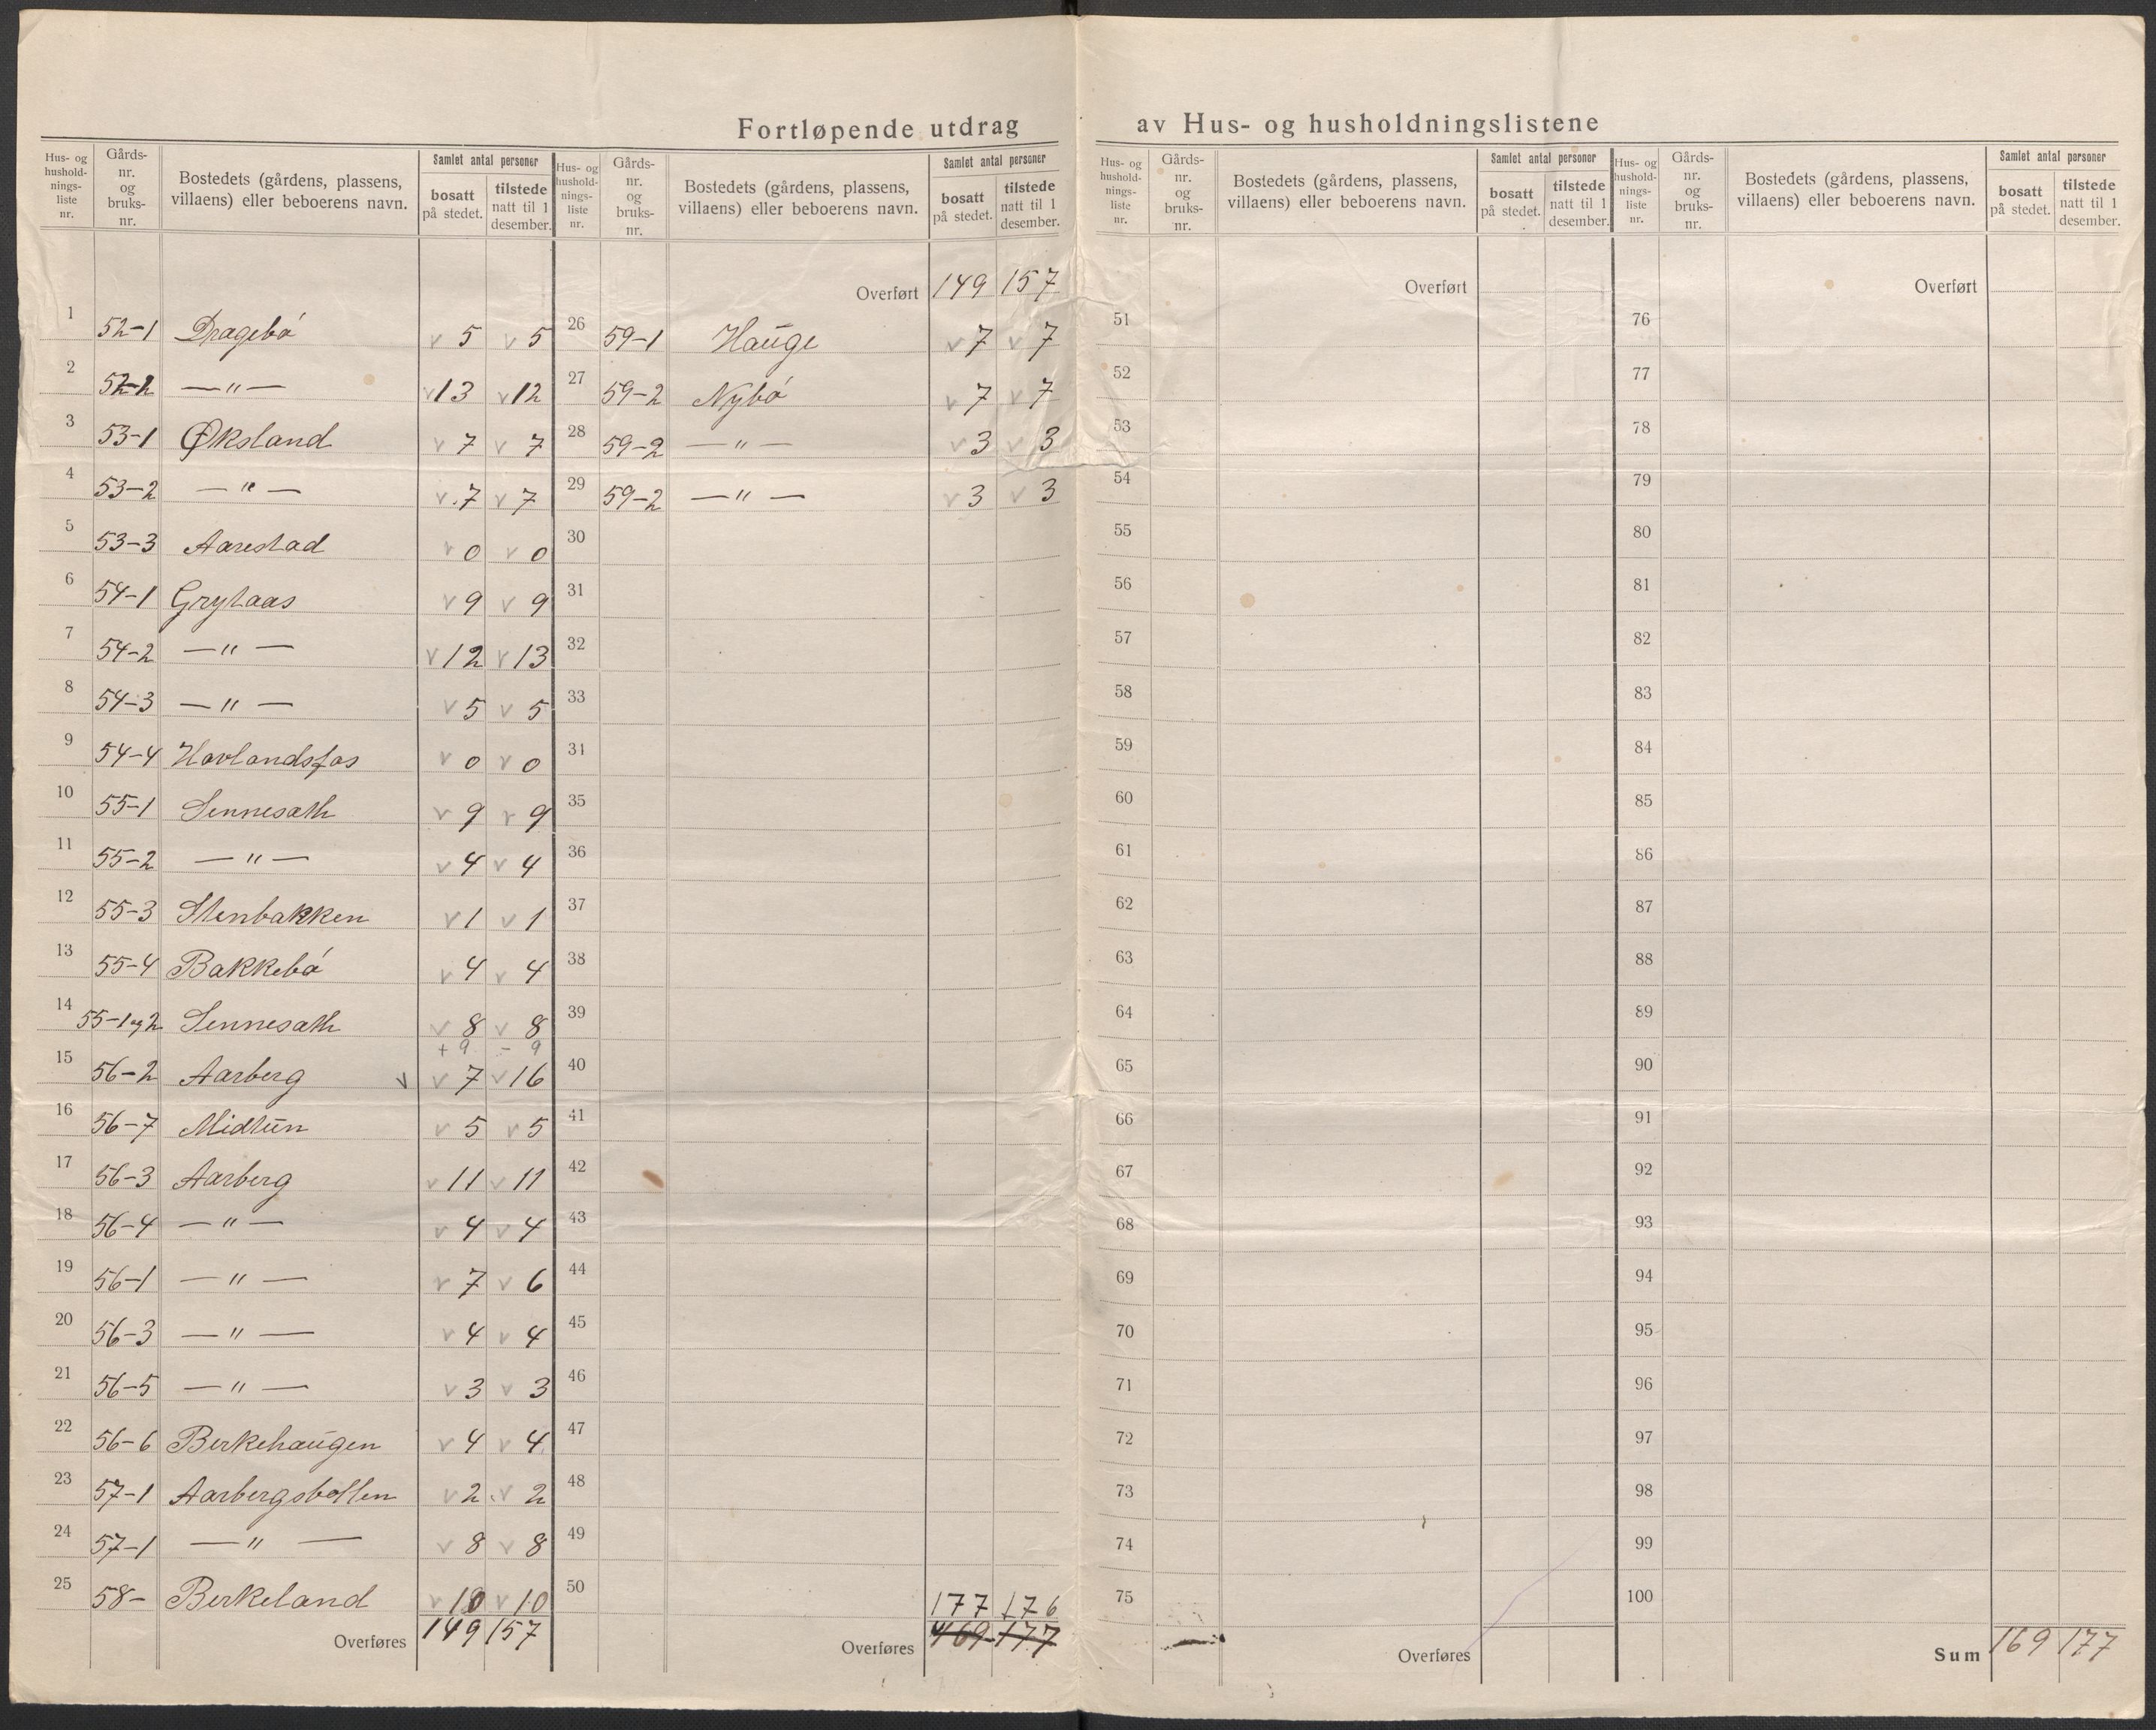 Fortløpende utdrag av Hus- og husholdningslistene
Hus- og hushold-nings-liste nr. | Gårds-nr. og bruks-nr. | Bostedets (gårdens, plassens, villaens) eller beboerens navn. | Samlet antal personer | bosatt på stedet. | tilstede natt til 1 desember.
1 52-1 Dragebø v 5 v 5
2 52-2 —"— v 13 v 12
3 53-1 Øksland v 7 v 7
4 53-2 —"— v 7 v 7
5 53-3 Aarestad v 0 v 0
6 54-1 Grytaas v 9 v 9
7 54-2 —"— v 12 v 13
8 54-3 —"— v 5 v 5
9 54-4 Havlandsfos v 0 v 0
10 55-1 Sennesæth v 9 v 9
11 55-2 —"— v 4 v 4
12 55-3 Stenbakken v 1 v 1
13 55-4 Bakkebø v 4 v 4
14 55-1og2 Sennesæth v 8 v 8
+ 9 - 9
15 56-2 Aarberg v v 7 v 16
16 56-7 Midtun v 5 v 5
17 56-3 Aarberg v 11 v 11
18 56-4 —"— v 4 v 4
19 56-1 —"— v 7 v 6
20 56-3 —"— v 4 v 4
21 56-5 —"— v 3 v 3
22 56-6 Berkehaugen v 4 v 4
23 57-1 Aarbergsbotten v 2 v 2
24 57-1 —"— v 8 v 8
25 58- Berkeland v 10 v 10
Overføres 149 157
Hus- og hushold-nings-liste nr. | Gårds-nr. og bruks-nr. | Bostedets (gårdens, plassens, villaens) eller beboerens navn. | Samlet antal personer | bosatt på stedet. | tilstede natt til 1 desember.
Overført 149 157
26 59-1 Hauge v 7 v 7
27 59-2 Nybø v 7 v 7
28 59-2 —"— v 3 v 3
29 59-2 —"— v 3 v 3
30
31
32
33
31
35
36
37
38
39
40
41
42
43
44
45
46
47
48
49
50
177 176
Overføres 169 177
Hus- og hushold-nings-liste nr. | Gårds-nr. og bruks-nr. | Bostedets (gårdens, plassens, villaens) eller beboerens navn. | Samlet antal personer | bosatt på stedet. | tilstede natt til 1 desember.
Overført
51
52
53
54
55
56
57
58
59
60
61
62
63
64
65
66
67
68
69
70
71
72
73
74
75
Overføres
Hus- og hushold-nings-liste nr. | Gårds-nr. og bruks-nr. | Bostedets (gårdens, plassens, villaens) eller beboerens navn. | Samlet antal personer | bosatt på stedet. | tilstede natt til 1 desember.
Overført
76
77
78
79
80
81
82
83
84
85
86
87
88
89
90
91
92
93
94
95
96
97
98
99
100
Sum 169 177